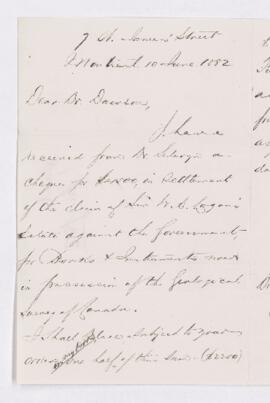 7 St. James Street
Montreal 10 June 1882
Dear Dr. Dawson,
I have
received from Dr Selwyn a
cheque for in settlement
of the claim of Sir W. E. Logan's
Estate against the Government,
for Books & Instruments now
in possession of the Geological
Survey of Canada.
I shall place subject to your
order one half of this sum